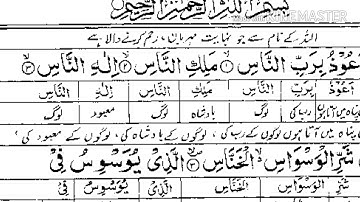 بسم الله الرحمن الرحيم
اللہ کے نام سے جو نہایت مہربان، رحم کرنے والا ہے
اَعُوْذُ بِرَبِّ النَّاسِ ۝۱ مَلِكِ النَّاسِ ۝۲ اِلٰهِ النَّاسِ ۝۳
اَعُوْذُ بِرَبِّ النَّاسِ مَلِكِ النَّاسِ اِلٰهِ النَّاسِ
پناہ میں آتا ہوں رب کی لوگ بادشاہ لوگ معبود لوگ
پناہ میں آتا ہوں لوگوں کے رب کی، لوگوں کے بادشاہ کی، لوگوں کے معبود کی،
شَرِّ الْوَسْوَاسِ الْخَنَّاسِ ۝۴ الَّذِیْ یُوَسْوِسُ فِیْ
شَرِّ الْوَسْوَاسِ الْخَنَّاسِ الَّذِیْ یُوَسْوِسُ فِیْ